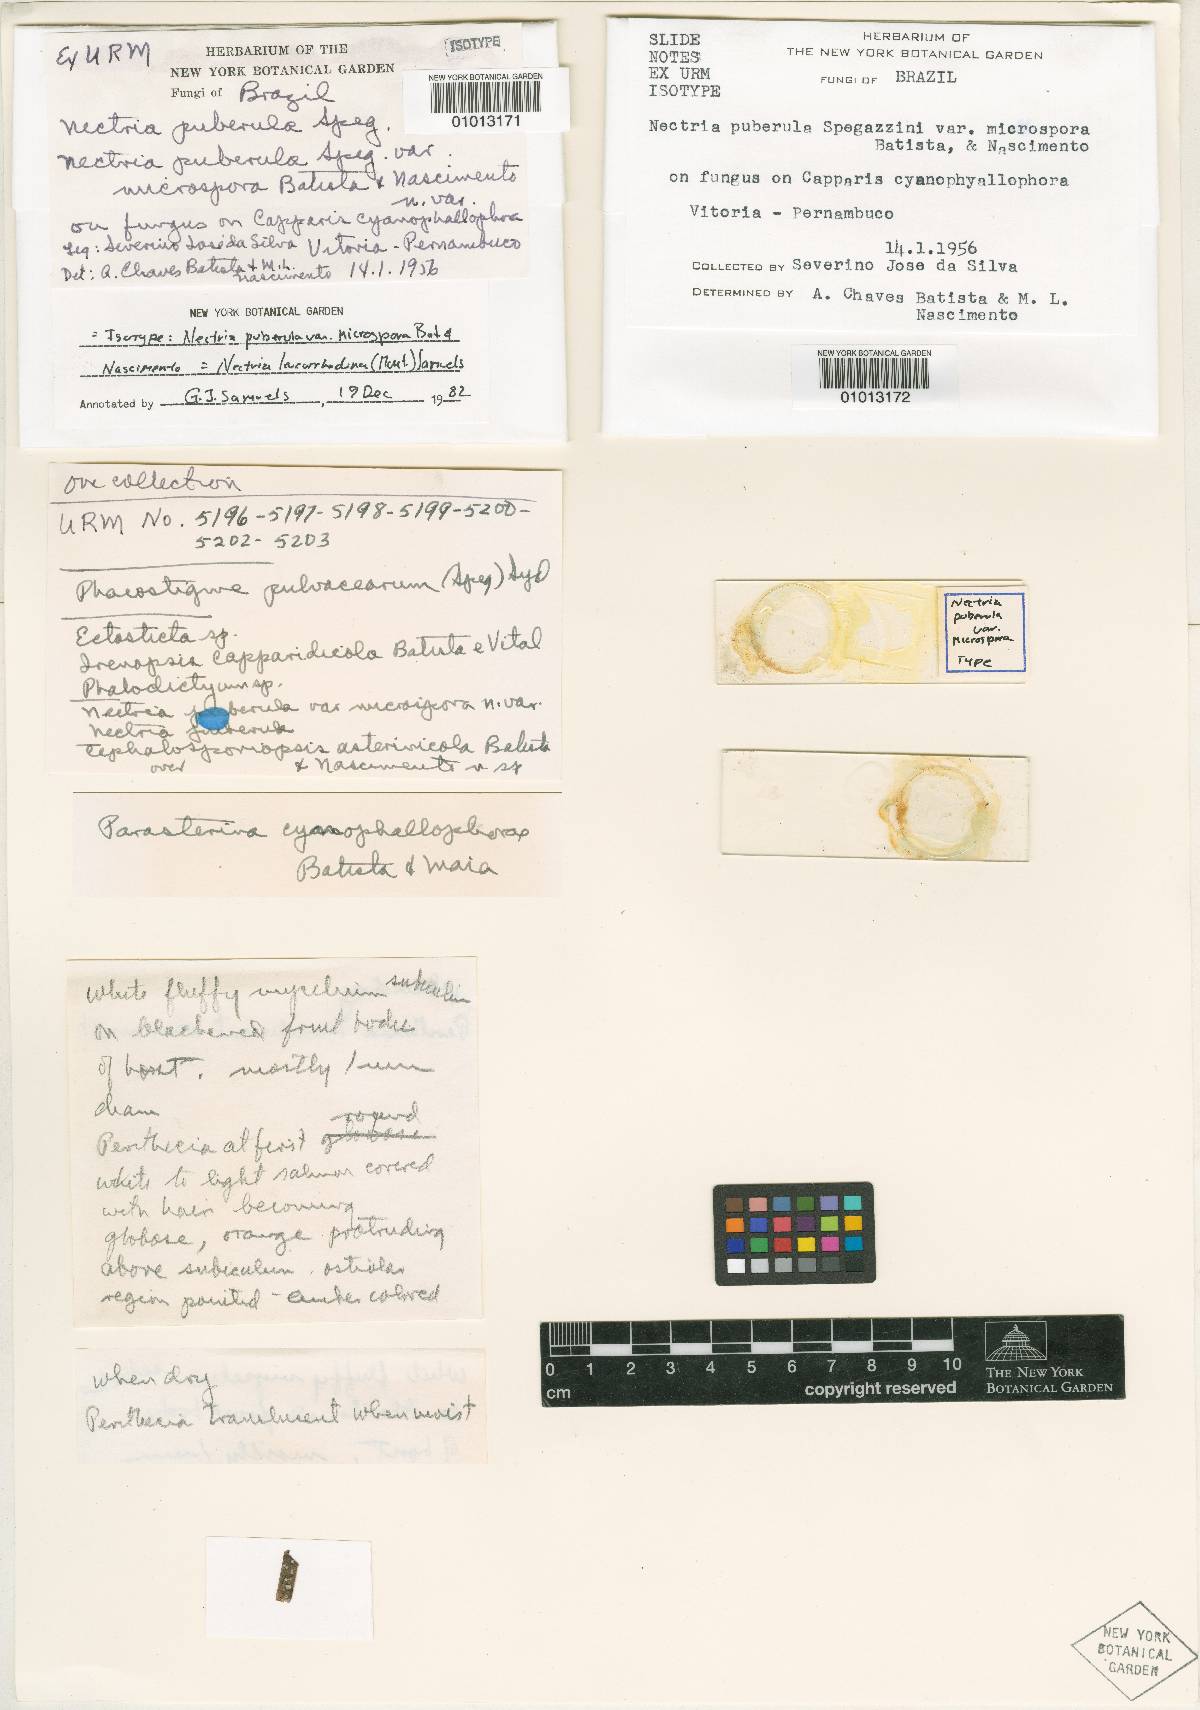 Ex URM
HERBARIUM OF THE
ISOTYPE
NEW YORK BOTANICAL GARDEN
Fungi of Brazil
NEW YORK BOTANICAL GARDEN
01013171
Nectria puberula Speg.
Nectria puberula Speg. var.
microspora Batista & Nascimento
n. var.
on fungus on Capparis cyanophallophora
Leg: Severino José da Silva Vitoria - Pernambuco
Det: A. Chaves Batista & M. L.
Nascimento 14.1.1956
NEW YORK BOTANICAL GARDEN
= Isotype: Nectria puberula var. microspora Bat &
Nascimento = Nectria (Mont.) Samuels
Annotated by G.J. Samuels, 19 Dec 1982
SLIDE
NOTES
EX URM
ISOTYPE
HERBARIUM OF
THE NEW YORK BOTANICAL GARDEN
FUNGI OF BRAZIL
Nectria puberula Spegazzini var. microspora
Batista, & Nascimento
on fungus on Capparis cyanophyallophora
Vitoria - Pernambuco
14.1.1956
COLLECTED BY Severino Jose da Silva
DETERMINED BY A. Chaves Batista & M. L.
Nascimento
NEW YORK BOTANICAL GARDEN
01013172
one collection
URM No. 5196-5197-5198-5199-5200-
5202-5203
(Speg) Syd
Ectosticta sp.
Irenopsis capparidicola Batista e Vital
Phalodictyum sp.
Nectria puberula var microspora n. var.
Nectria puberula
Cephalosporiopsis asterinicola Batista
over & Nascimento n sp
Parasterina cyanophallophorae
Batista & Maia
Nectria
puberula
var.
microspora
TYPE
White fluffy mycelium subiculum
on blackened fruit bodies
of host. mostly 1 mm
diam
Perithecia at first globose round
white to light salmon covered
with hair becoming
globose, orange protruding
above subiculum. ostiolar
region pointed - amber colored
when dry
Perithecia translucent when moist
0 1 2 3 4 5 6 7 8 9 10
cm
copyright reserved
THE NEW YORK
BOTANICAL GARDEN
NEW YORK
BOTANICAL
GARDEN